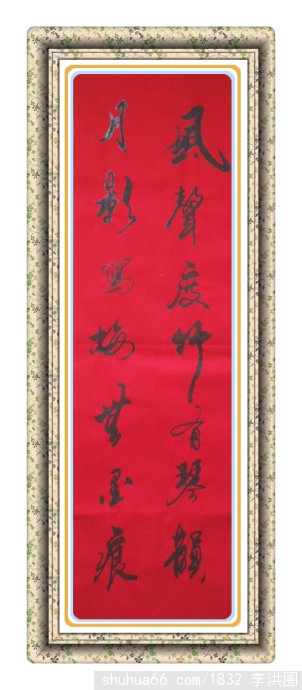 風聲度竹有琴韻
月影寫梅無墨痕
shuhua66.com/1832 李洪圈